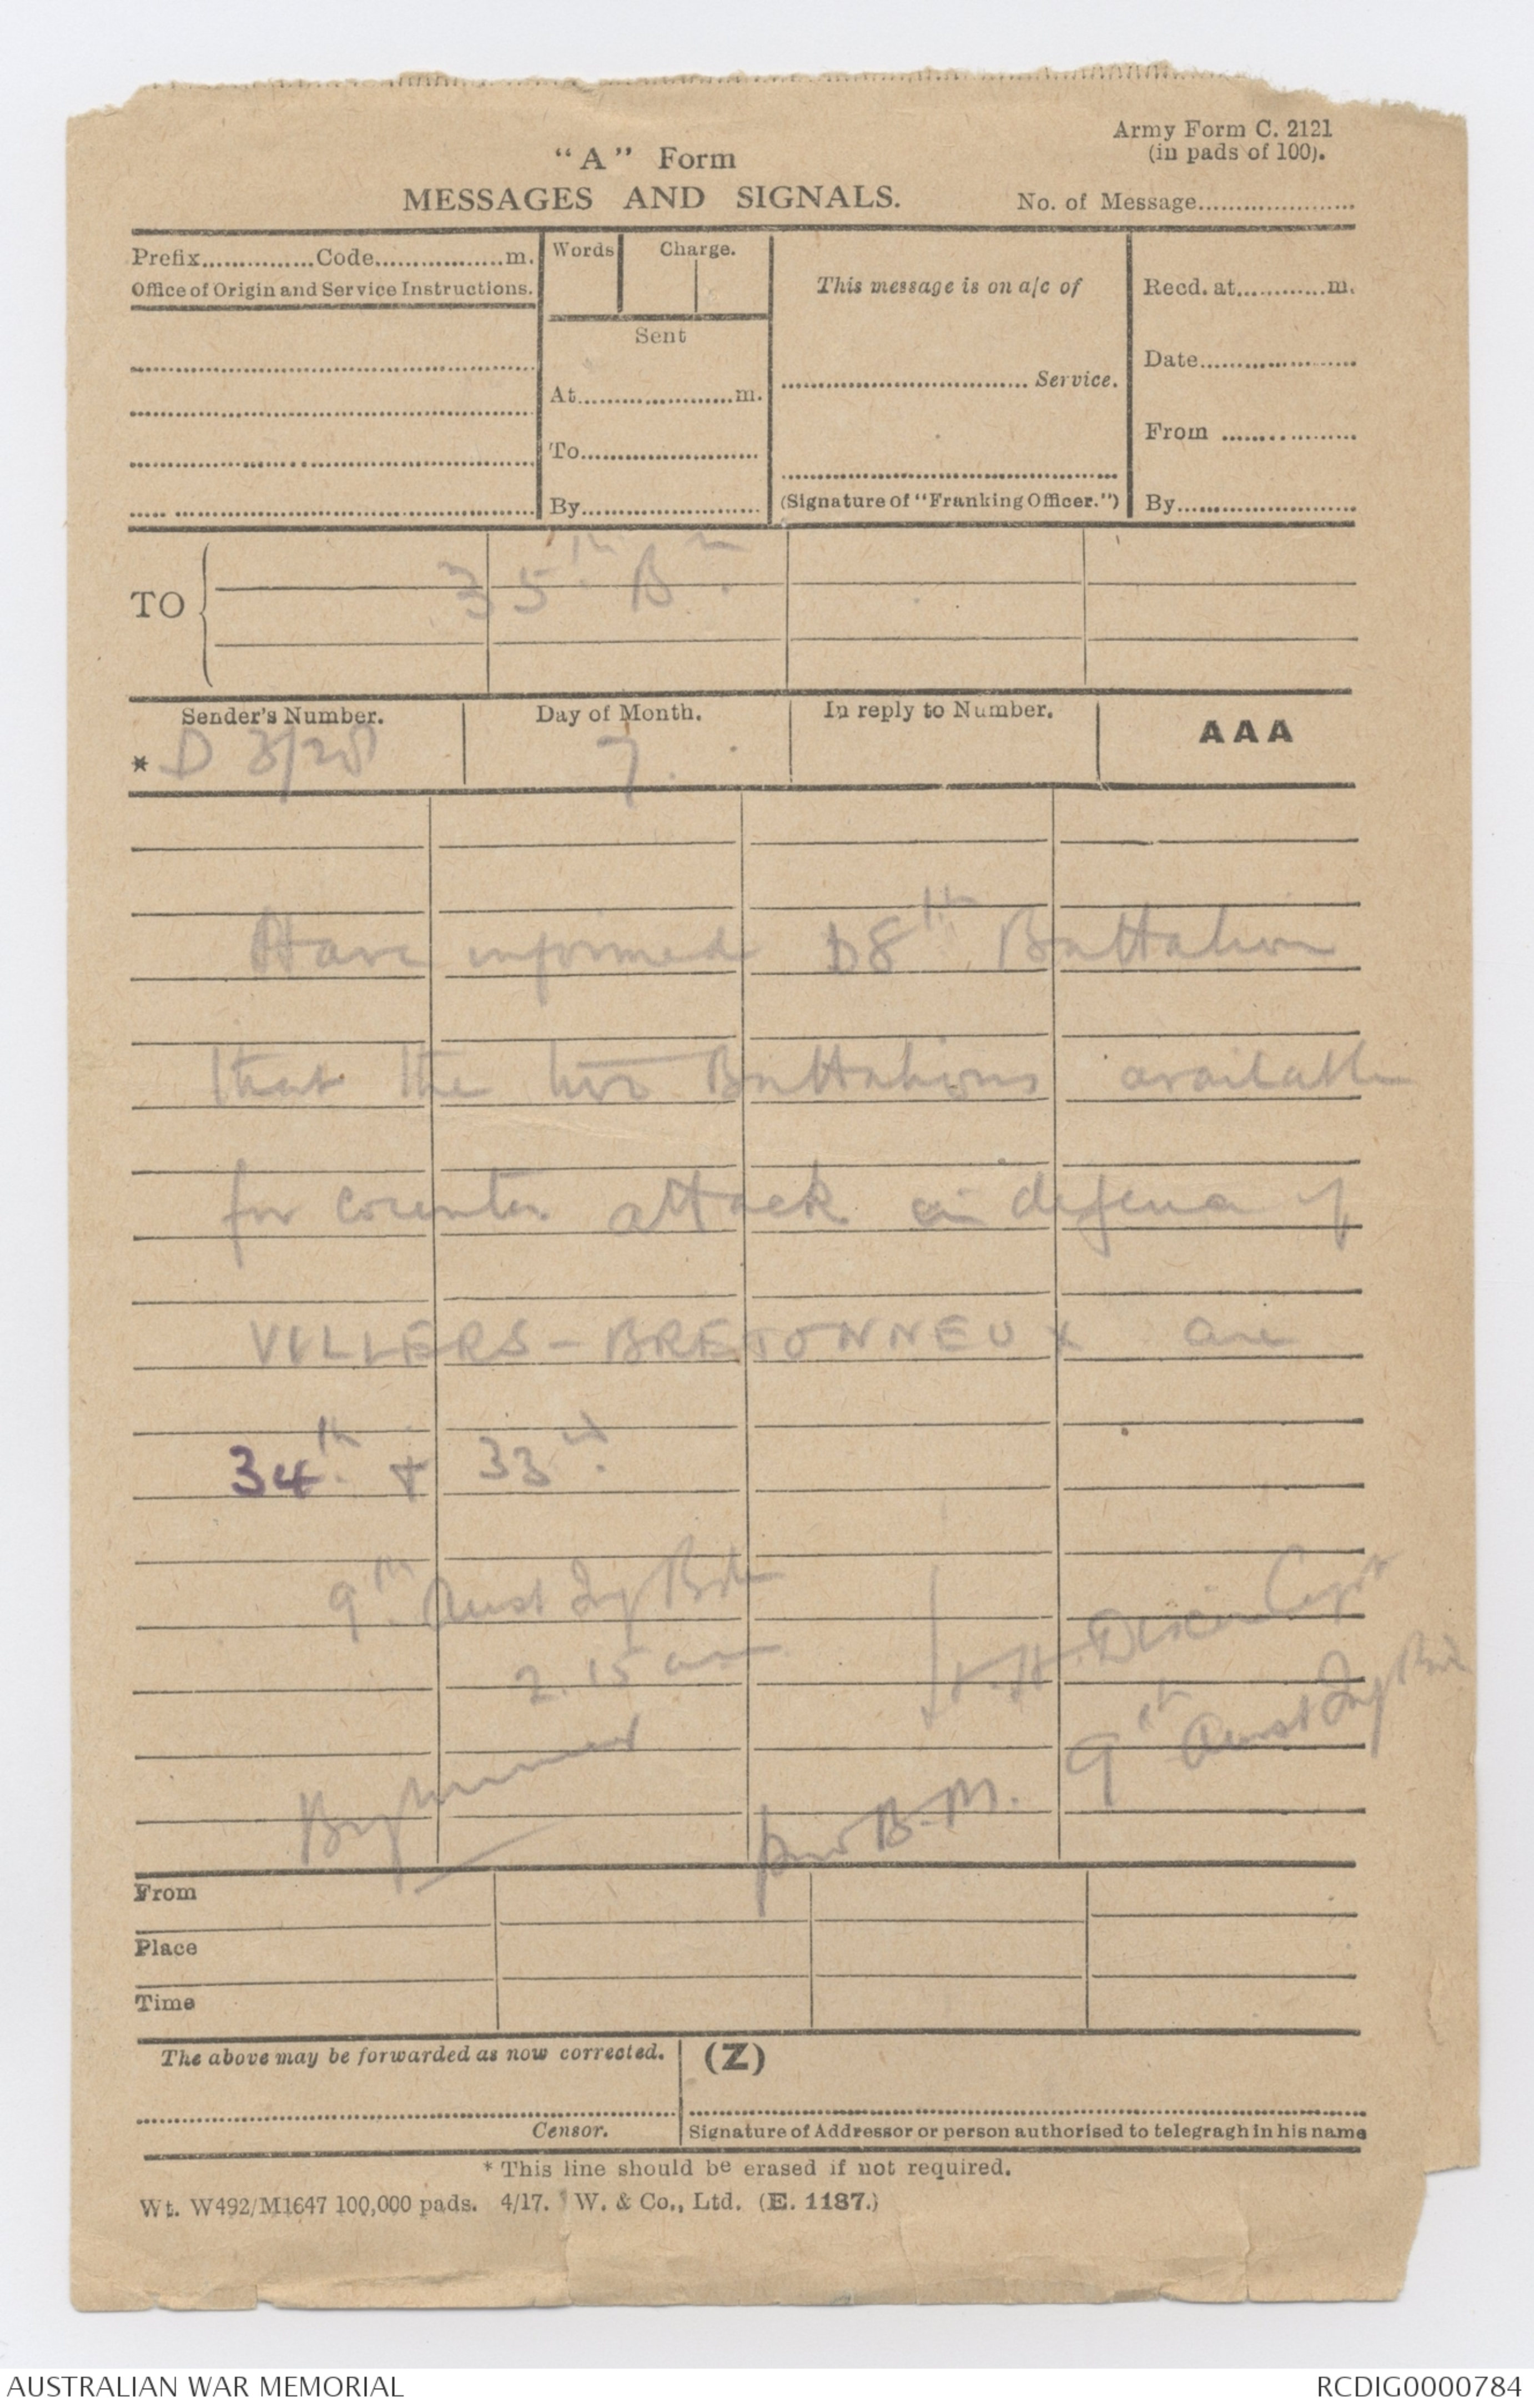 Army Form C. 2121
(in pads of 100).
"A" Form
MESSAGES AND SIGNALS.
No. of Message.....................
Prefix...............Code.................m.
Office of Origin and Service Instructions.
Words
Charge.
Sent
At.....................m.
To........................
By........................
This message is on a/c of
................................ Service.
(Signature of "Franking Officer.")
Recd. at............m.
Date.....................
From ..................
By........................
TO
35th Bn
Sender's Number.
Day of Month.
In reply to Number.
AAA
* D 3/28
7.
Have informed 58th Battalion
that the two Battalions available
for counter attack in defence of
VILLERS-BRETONNEUX are
34th & 33rd.
9th Aust Inf Bde
2.15 am
Capt
9th Aust Inf Bde
for B.M.
From
Place
Time
The above may be forwarded as now corrected.
(Z)
Censor.
Signature of Addressor or person authorised to telegragh in his name
* This line should be erased if not required.
Wt. W492/M1647 100,000 pads. 4/17. W. & Co., Ltd. (E. 1187.)
AUSTRALIAN WAR MEMORIAL
RCDIG0000784